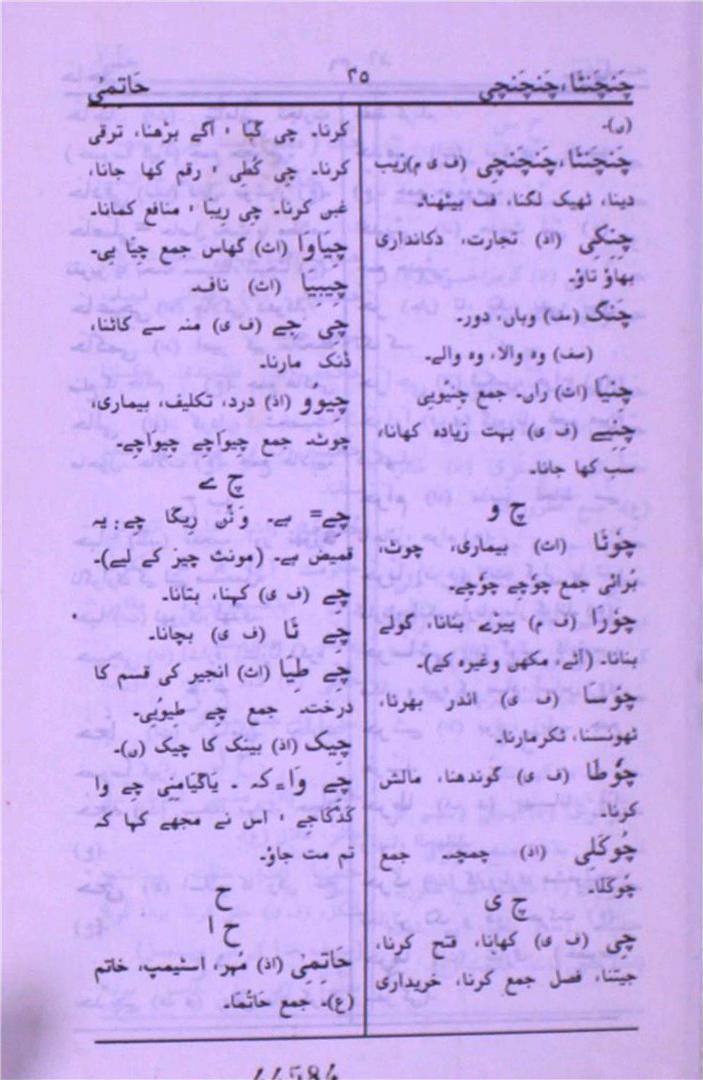 چَنچَنتَا، چَنچَنچِی ۲۵ خَاتمِیْ
(ی)۔
چَنچَنتَا، چَنچَنچِی (ف ی م) زیب
دینا، ٹھیک لگنا، فٹ بیٹھنا۔
چِنکِی (اذ) تجارت، دکانداری
بھاؤ تاؤ۔
چَنگ (مف) وہاں، دور۔
(صف) وہ والا، وہ والے۔
چَنیَا (اث) ران۔ جمع چِنیُوبِی
چَنیِے (ف ی) بہت زیادہ کھانا،
سب کھا جانا۔
چ و
چَوْتَا (اث) بیماری، چوٹ،
بُرائی جمع چَوچے چَوچے۔
چَورَا (ف م) پیڑے بنانا، گولے
بنانا۔ (آٹے، مکھن وغیرہ کے)۔
چَوسَا (ف ی) اندر بھرنا،
ٹھونسنا، ٹکر مارنا۔
چَوطَا (ف ی) گوندھنا، مالش
کرنا۔
چُوکَلی (اذ) چمچہ۔ جمع
چُوکَلَا۔
چ ی
چِی (ف ی) کھانا، فتح کرنا،
جیتنا، فصل جمع کرنا، خریداری
کرنا۔ چِی گیَا ' آگے بڑھنا، ترقی
کرنا۔ چِی کَطی ' رقم کھا جانا،
غبن کرنا۔ چِی ریبا ' منافع کمانا۔
چِیاوَا (اث) گھاس جمع چیَا یِی۔
چِیبِیَا (اث) نافہ۔
چِی چے (ف ی) منہ سے کاٹنا،
ڈنک مارنا۔
چِیوُو (اذ) درد، تکلیف، بیماری،
چوٹ۔ جمع چِیوَاچے چیوَاچے۔
چ ے
چے= ہے۔ وَنَّں رِیگَا چے: یہ
قمیض ہے۔ (مونث چیز کے لیے)۔
چے (ف ی) کہنا، بتانا۔
چے نَا (ف ی) بچانا۔
چے طِیَا (اث) انجیر کی قسم کا
درخت۔ جمع چے طیوُیِی۔
چیک (اذ) بینک کا چیک (ن)۔
چے وَا= کہ ۔ یَاگیَامِنِی چے وا
کَدَکَاچے ' اس نے مجھے کہا کہ
تم مت جاؤ۔
ح
ح ا
حَاتمِیْ (اذ) مُہر، اسٹیمپ، خاتم
(ع)۔ جمع حَاتُمَا۔
44584